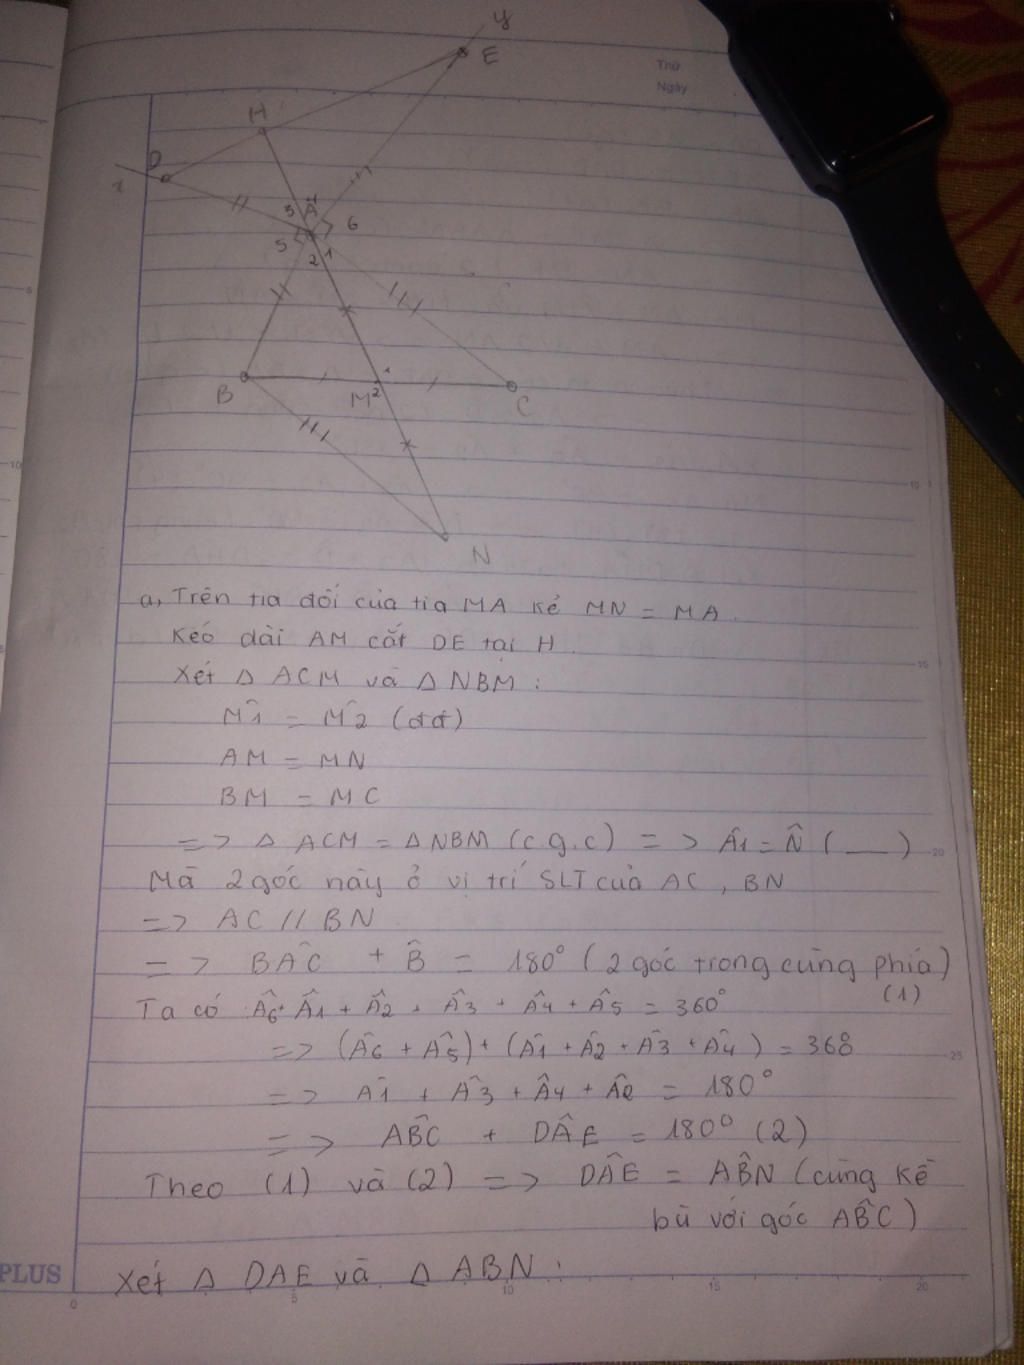 y
E
Thứ
Ngày
H
D
x
3 A 4
5 6
2 1
B M 2 1 C
N
a, Trên tia đối của tia MA kẻ MN = MA.
Kéo dài AM cắt DE tại H.
Xét Δ ACM và Δ NBM :
M̂1 = M̂2 (đđ)
AM = MN
BM = MC
=> Δ ACM = Δ NBM (c.g.c) => Â1 = N̂ ( __ )
Mà 2 góc này ở vị trí SLT của AC, BN
=> AC // BN.
=> BÂC + B̂ = 180° (2 góc trong cùng phía)
(1)
Ta có : Â6 + Â1 + Â2 + Â3 + Â4 + Â5 = 360°
=> (Â6 + Â5) + (Â1 + Â2 + Â3 + Â4) = 360
=> Â1 + Â3 + Â4 + Â2 = 180°
=> AB̂C + DÂE = 180° (2)
Theo (1) và (2) => DÂE = AB̂N (cùng kề
bù với góc AB̂C)
PLUS
Xét Δ DAE và Δ ABN :
0 5 10 15 20